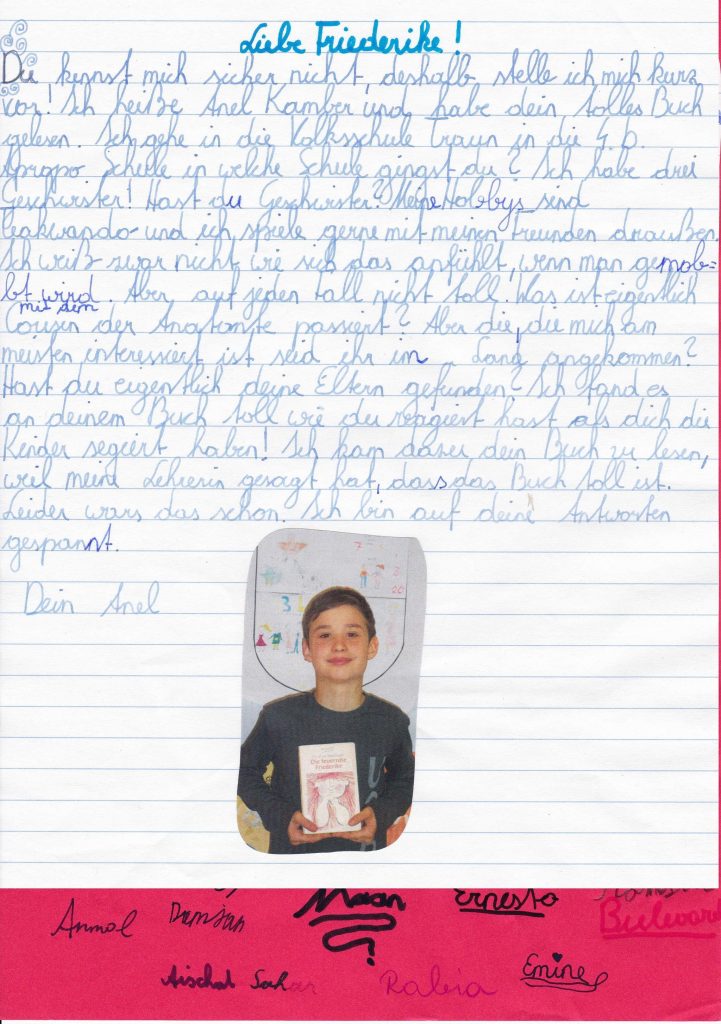 Liebe Friederike!
Du kennst mich sicher nicht, deshalb stelle ich mich kurz
vor! Ich heiße Anel Kamber und habe dein tolles Buch
gelesen. Ich gehe in die Volksschule Traun in die 4. b.
Apropo Schule in welche Schule gingst du? Ich habe drei
Geschwister! Hast du Geschwister? Meine Hobbys sind
Teakwando und ich spiele gerne mit meinen Freunden draußen.
Ich weiß zwar nicht, wie sich das anfühlt, wenn man gemob=
bt wird. Aber auf jeden Fall nicht toll! Was ist eigentlich
mit dem
Cousin der Annatante passiert? Aber die, die mich am
meisten interessiert ist seid ihr im Land angekommen?
Hast du eigentlich deine Eltern gefunden? Ich fand es
an deinem Buch toll wie du reagiert hast als dich die
Kinder segiert haben! Ich kam dazu dein Buch zu lesen,
weil meine Lehrerin gesagt hat, dass das Buch toll ist.
Leider wars das schon. Ich bin auf deine Antworten
gespannt.
Dein Anel
3
20
Die feuerrote
Friederike
Anmol
Damjan
Maan
?
Ernesto
Aischat
Rabia
Emine